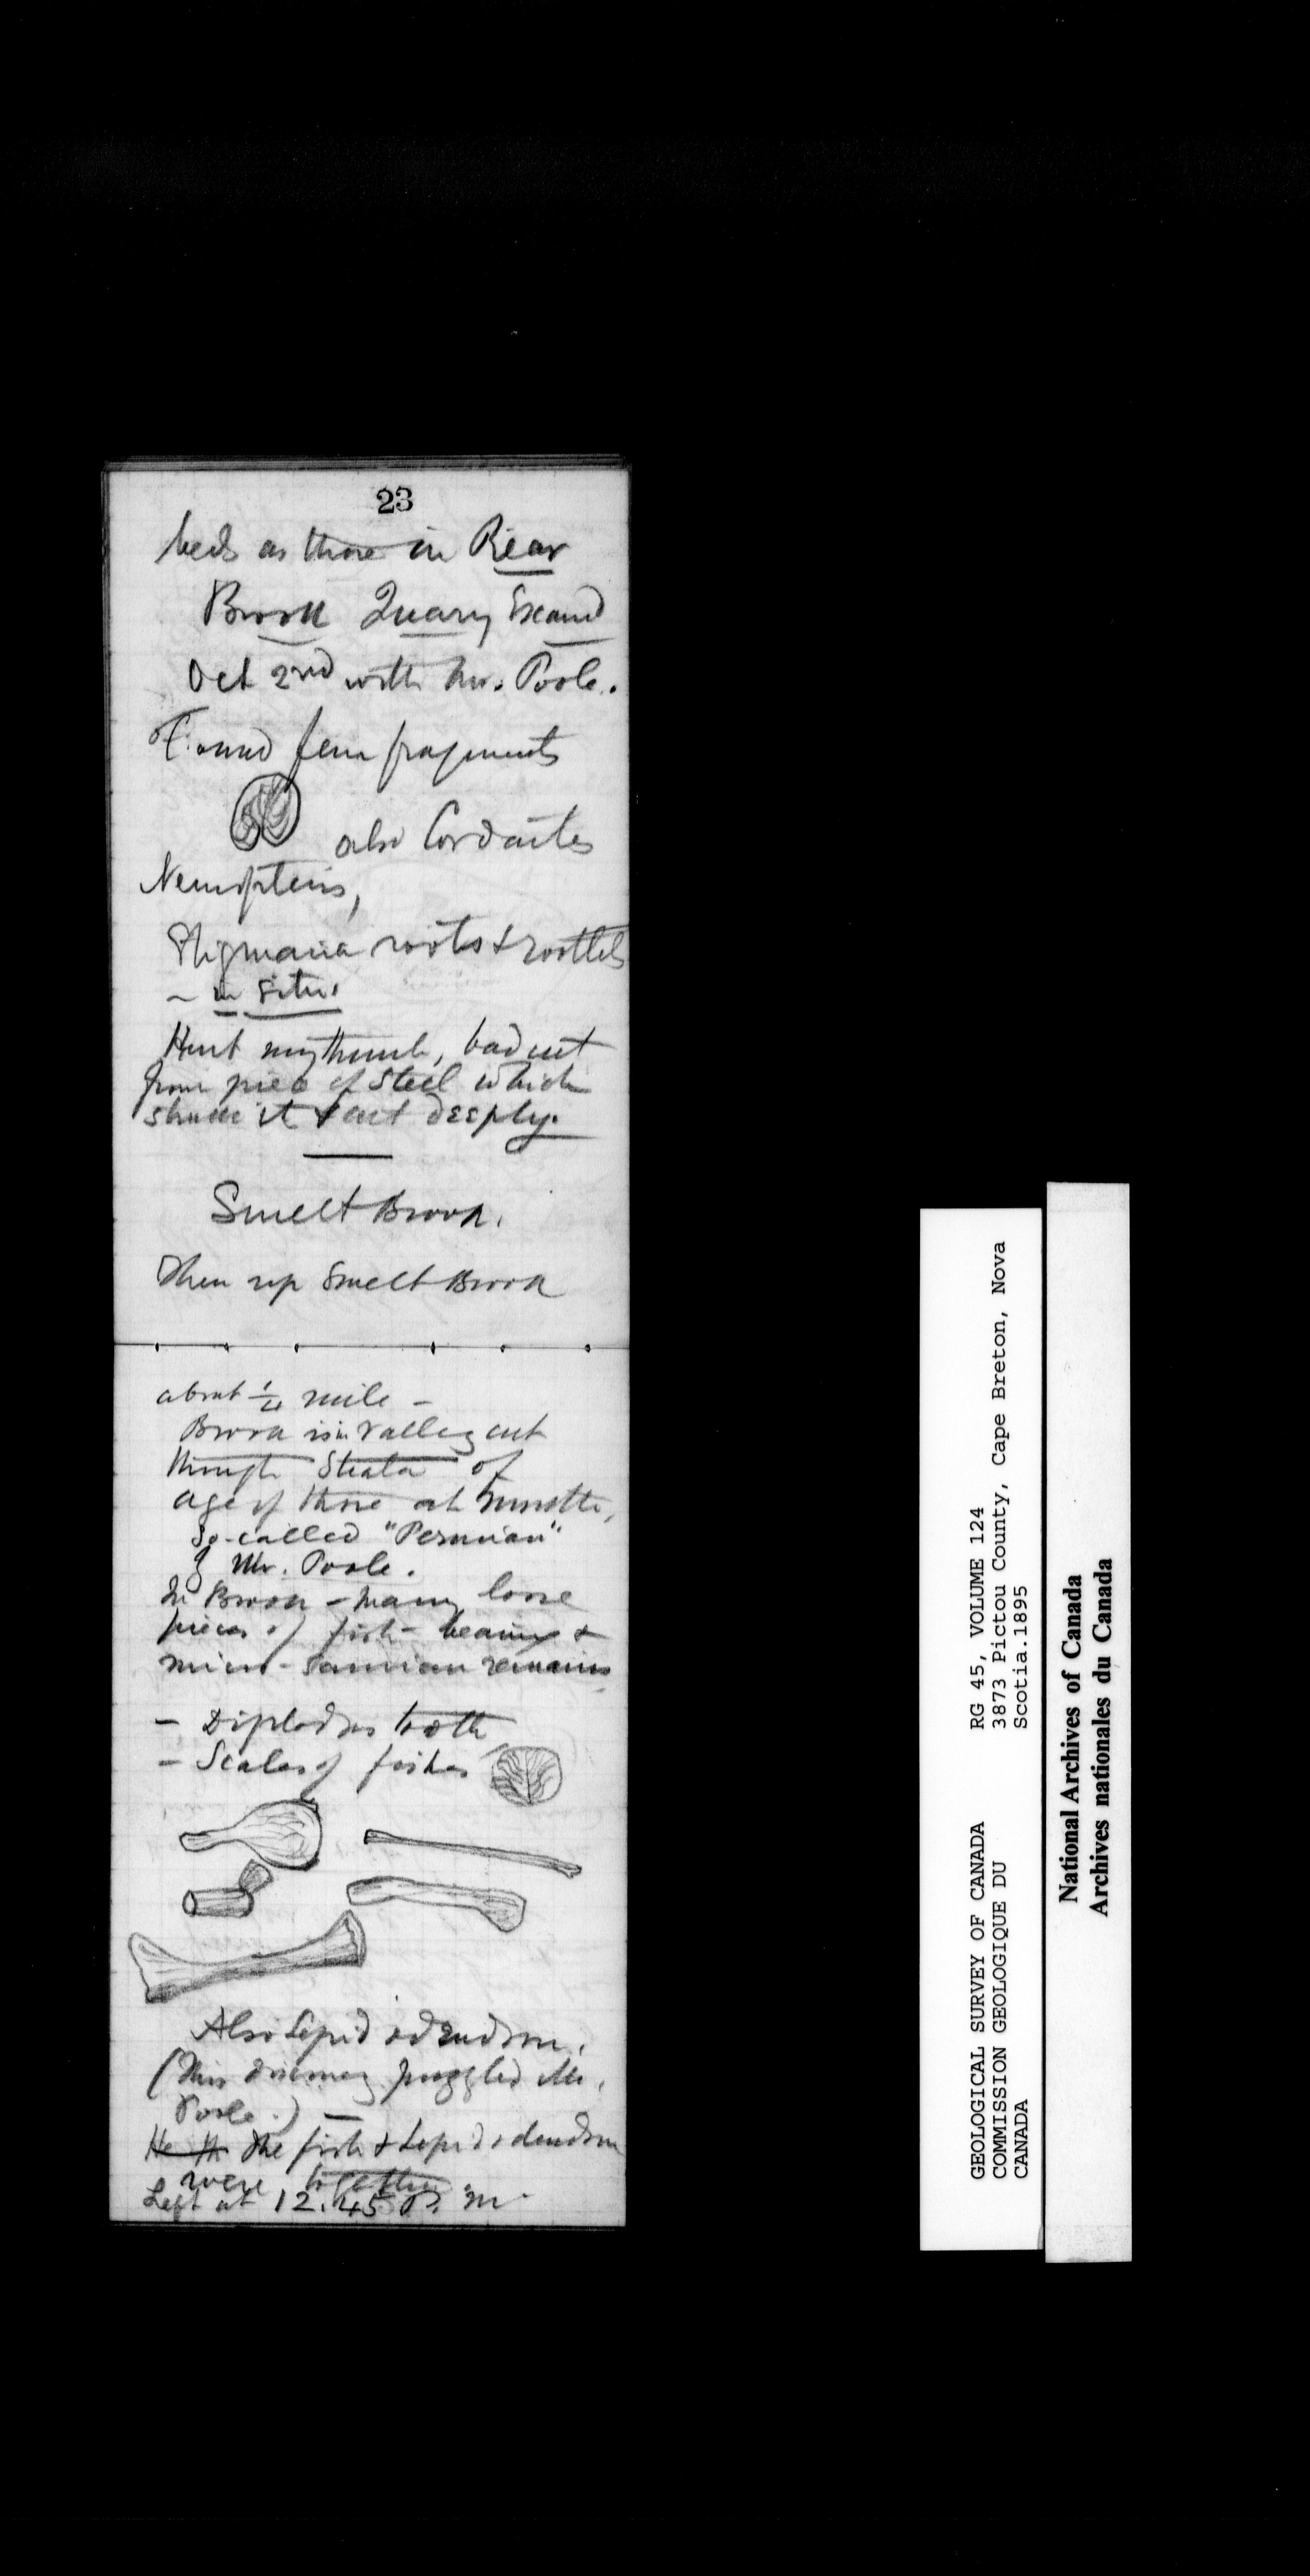 23
beds as those in Rear
Brook Quarry Examd
Oct 2nd with Mr. Poole.
Found fern fragments
also Cordaites
Neuropteris,
Stigmaria roots & rootlets
– in situ.
Hurt my thumb, bad cut
from piece of steel which
struck it & cut deeply.
Smelt Brook.
Then up Smelt Brook
about 1/4 mile –
Brook is in valley cut
through Strata of
age of those at
so-called "Permian"
of Mr. Poole.
In Brook – many loose
pieces of fish-bearing &
micro-saurian remains
– Diplodus tooth
– Scales of fishes
Also Lepidodendron.
(This discovery puzzled Mr.
Poole.) –
He th The fish & Lepidodendron
were together.
Left at 12.45 P. m.
GEOLOGICAL SURVEY OF CANADA
COMMISSION GEOLOGIQUE DU
CANADA
RG 45, VOLUME 124
3873 Pictou County, Cape Breton, Nova
Scotia.1895
National Archives of Canada
Archives nationales du Canada